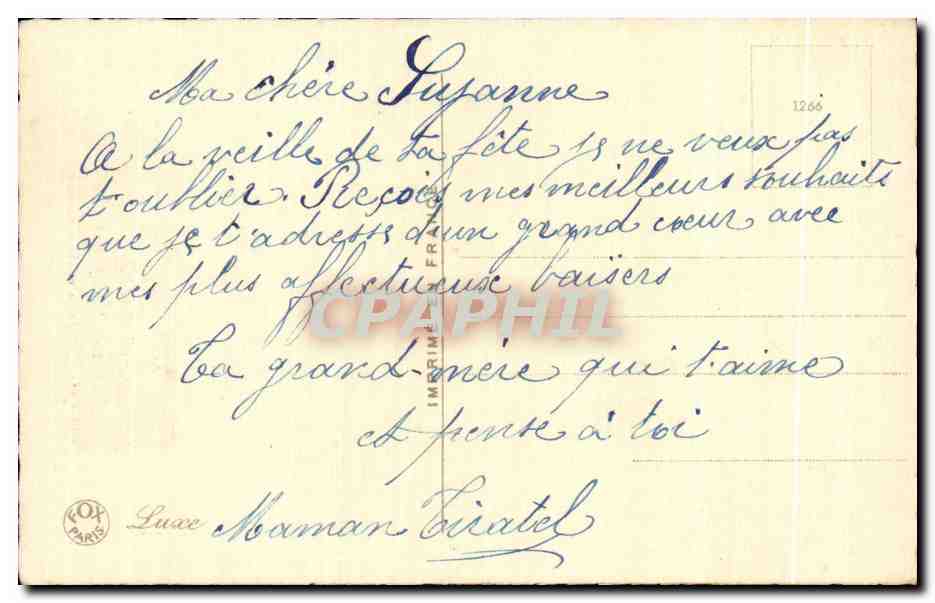 Ma chère Suzanne
1266
A la veille de ta fête je ne veux pas
t'oublier. Reçois mes meilleurs souhaits
que je t'adresse d'un grand cœur avec
mes plus affectueux baisers
CPAPHIL
IMPRIMÉ EN FRANCE
Ta grand-mère qui t'aime
et pense à toi
FOX
PARIS
Luxe
Maman Tiratel